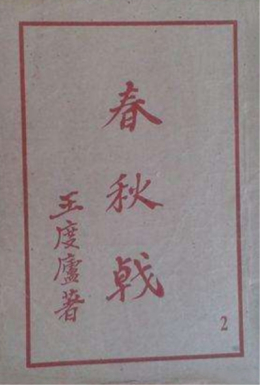 春秋戟
王度廬著
2